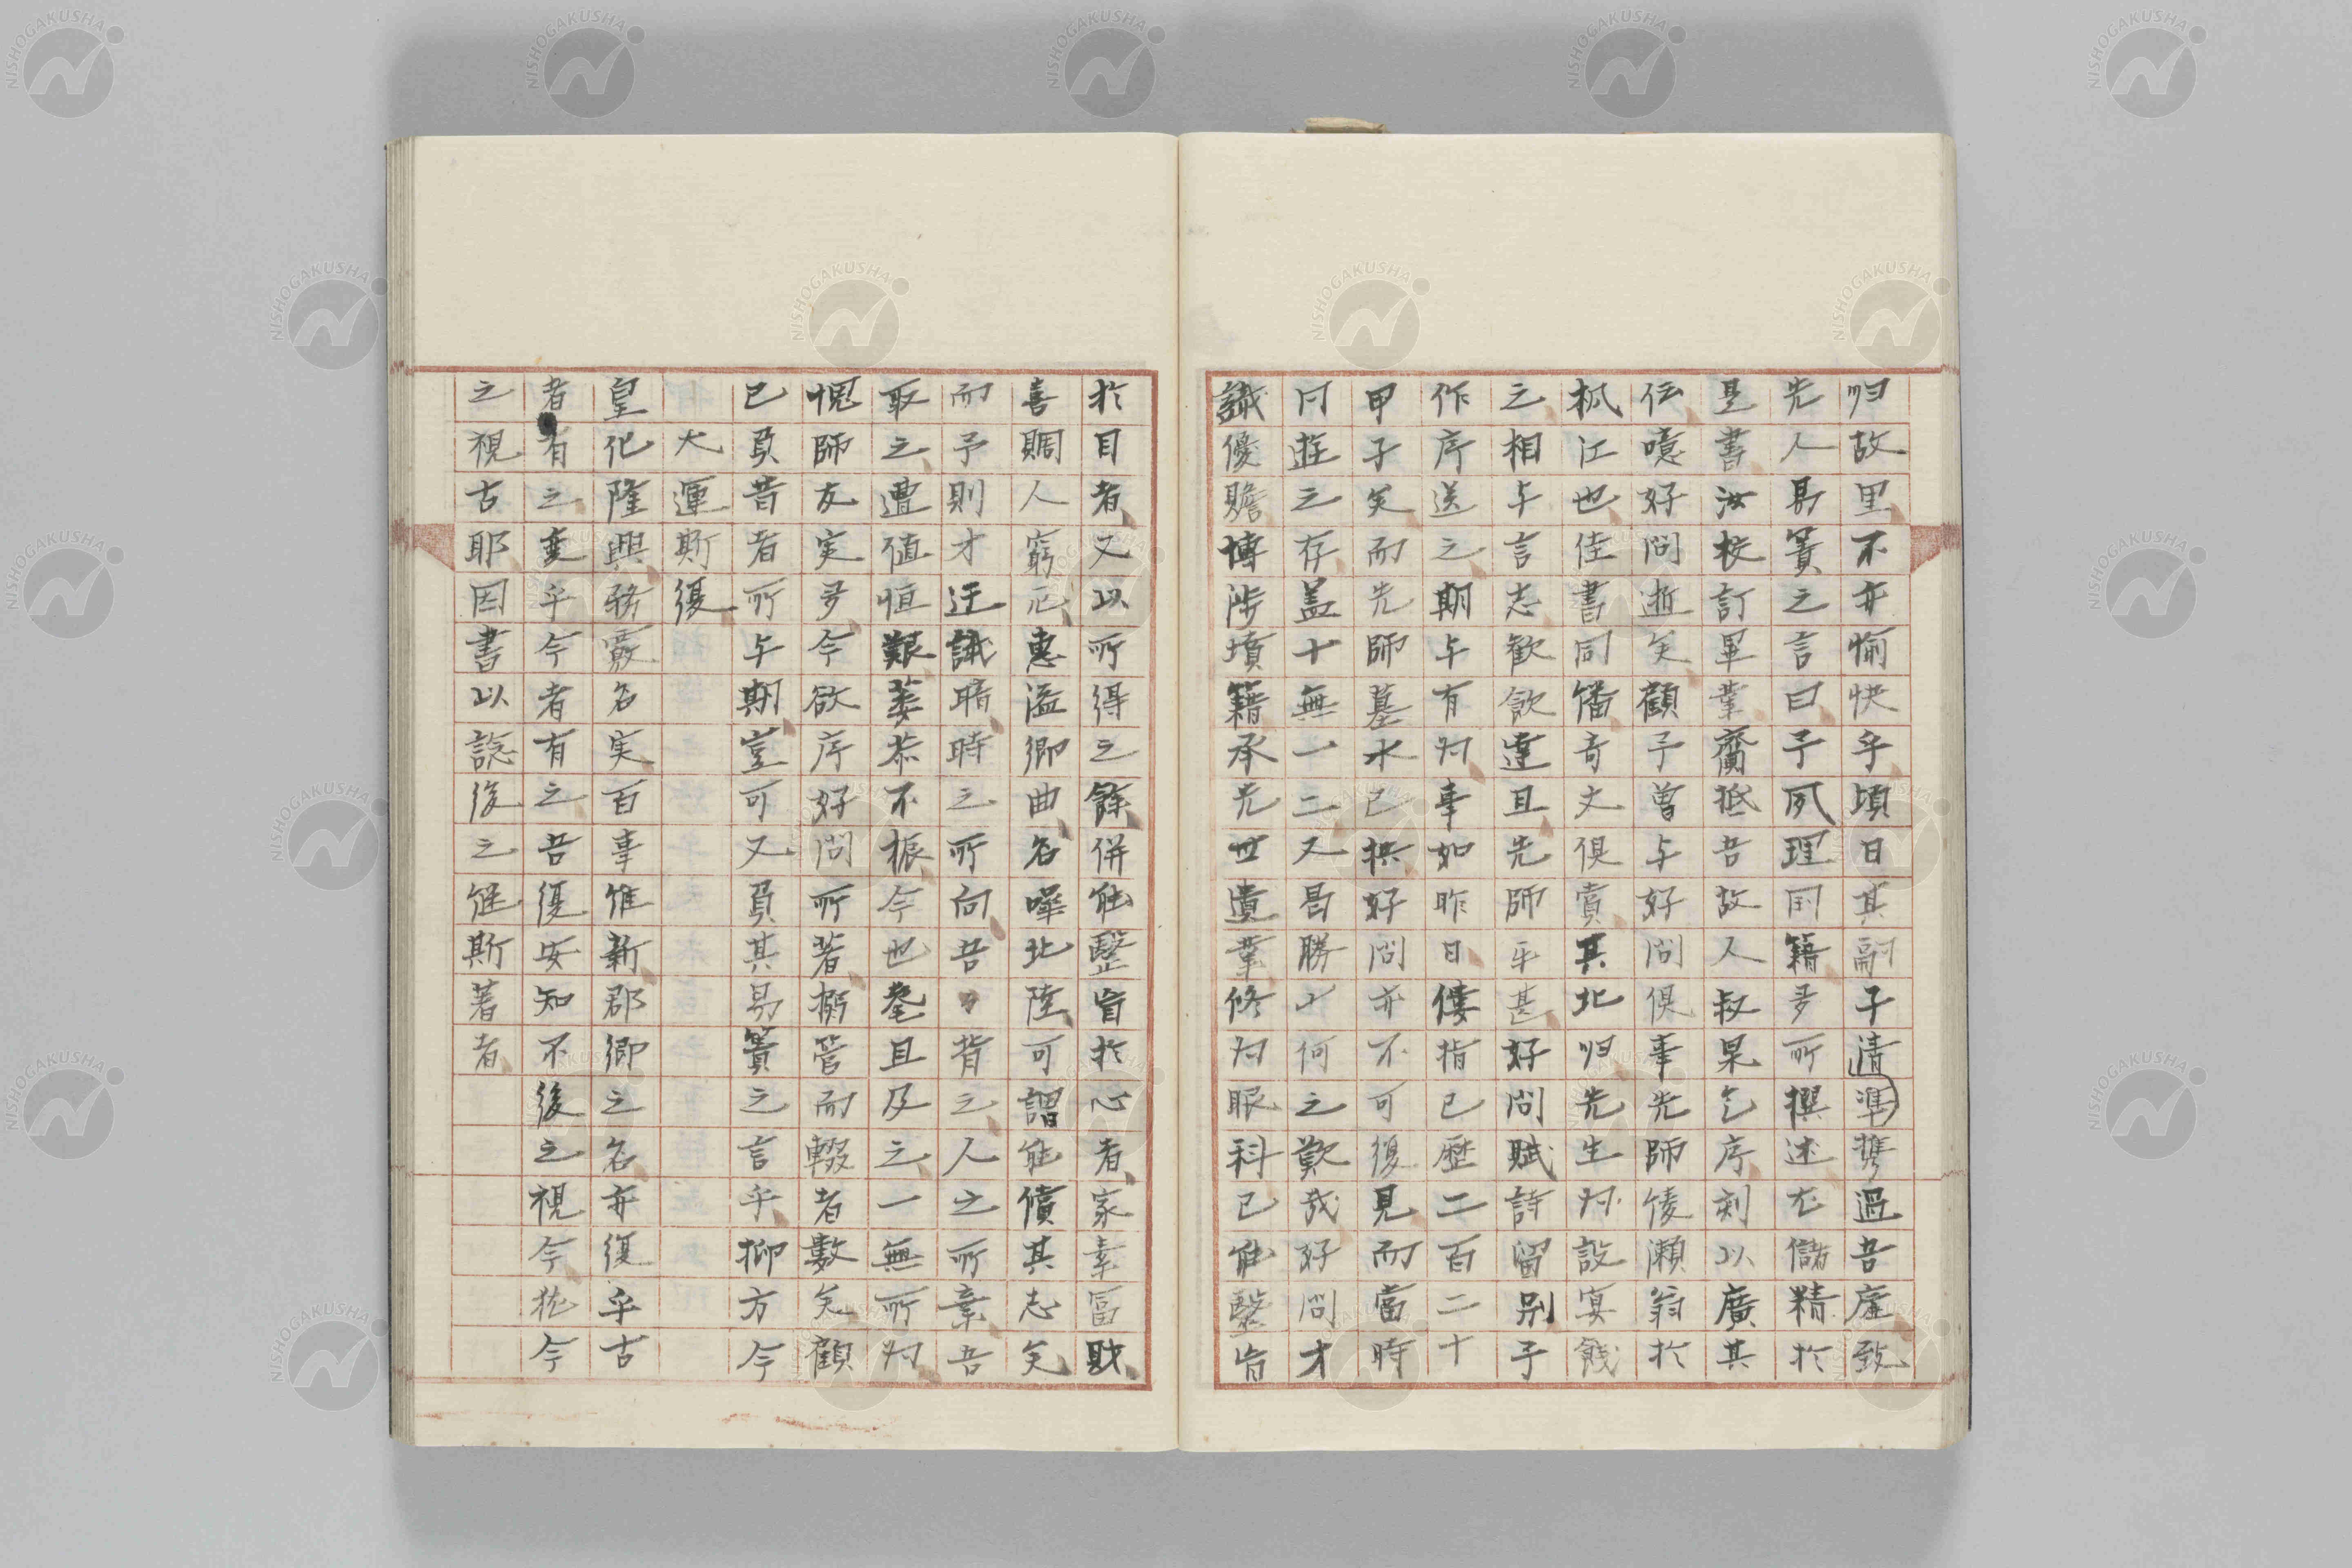 归故里不亦愉快乎頃日其嗣子清準携過吾廬致
先人易簀之言曰予夙理国籍多所撰述尤儲精於
是書汝校訂畢業齎抵吾故人叔果乞序刻以廣其
伝噫好問逝矣顧予曽与好問倶事先師倰瀬翁於
柧江也佳書同繙奇文倶賞其北归先生为設宴餞
之相与言志歓飲達旦先師平甚好問賦詩留別予
作序送之期与有为事如昨日僂指已歴二百二十
甲子矣而先師墓木已拱好問亦不可復見而當時
同遊之存盖十無一二又曷勝少何之歎哉好問才
識優贍博渉墳籍承先世遺業修为眼科已能毉盲
於目者又以所得之餘併能毉盲於心者家素富財
喜賙人窮厄惠溢郷曲名噪北陸可謂能償其志矣
而予則才迂識暗時之所向吾乃背之人之所棄吾
取之遭値恒艱萎茶不振今也耄且及之一無所为
愧師友実多今欲序好問所著搦管而輟者數矣顧
已負昔者所与期豈可又負其易簀之言乎抑方今
大運斯復
皇化隆興務覈名実百事惟新郡郷之名亦復乎古
者有之重乎今者有之吾復安知不後之視今猶今
之視古耶因書以諗後之継斯著者
NISHOGAKUSHA